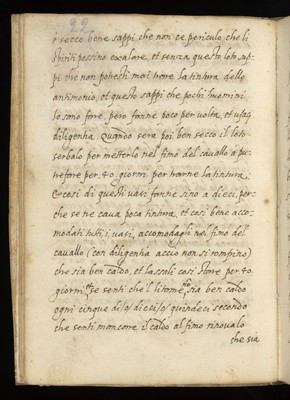 22
è secco bene sappi che non ce periculo, che li
spiriti possino exalare, et senza questo loto sap-
pi che non potresti mai trare la tintura dello
antimonio, et questo sappi che pochi huomini
lo sano fare, però farine poco per volta, et usaci
diligenha Quando sera poi ben secco il loto
serbalo per metterlo nel fimo del cauallo a pu-
trefare per .40. giorni per trarne la tintura.
Et cosi di questi uasi farine sino a dieci, per-
che se ne caua poca tintura. et cosi bene acco-
modati tutti i uasi, accomodagli nel fimo del
cauallo (con diligenha accio non si rompino)
che sia ben caldo, et lascali cosi stare per 40
giorni, et se senti che'l sia ben caldo
ogni cinque di/o/ dieci/o/ quindeci secondo
che senti mancare il caldo al fimo rinoualo
che sia